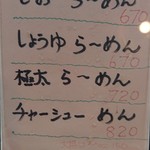 しお ら～めん
670
しょうゆ ら～めん
670
極太 ら～めん
720
チャーシュー めん
820